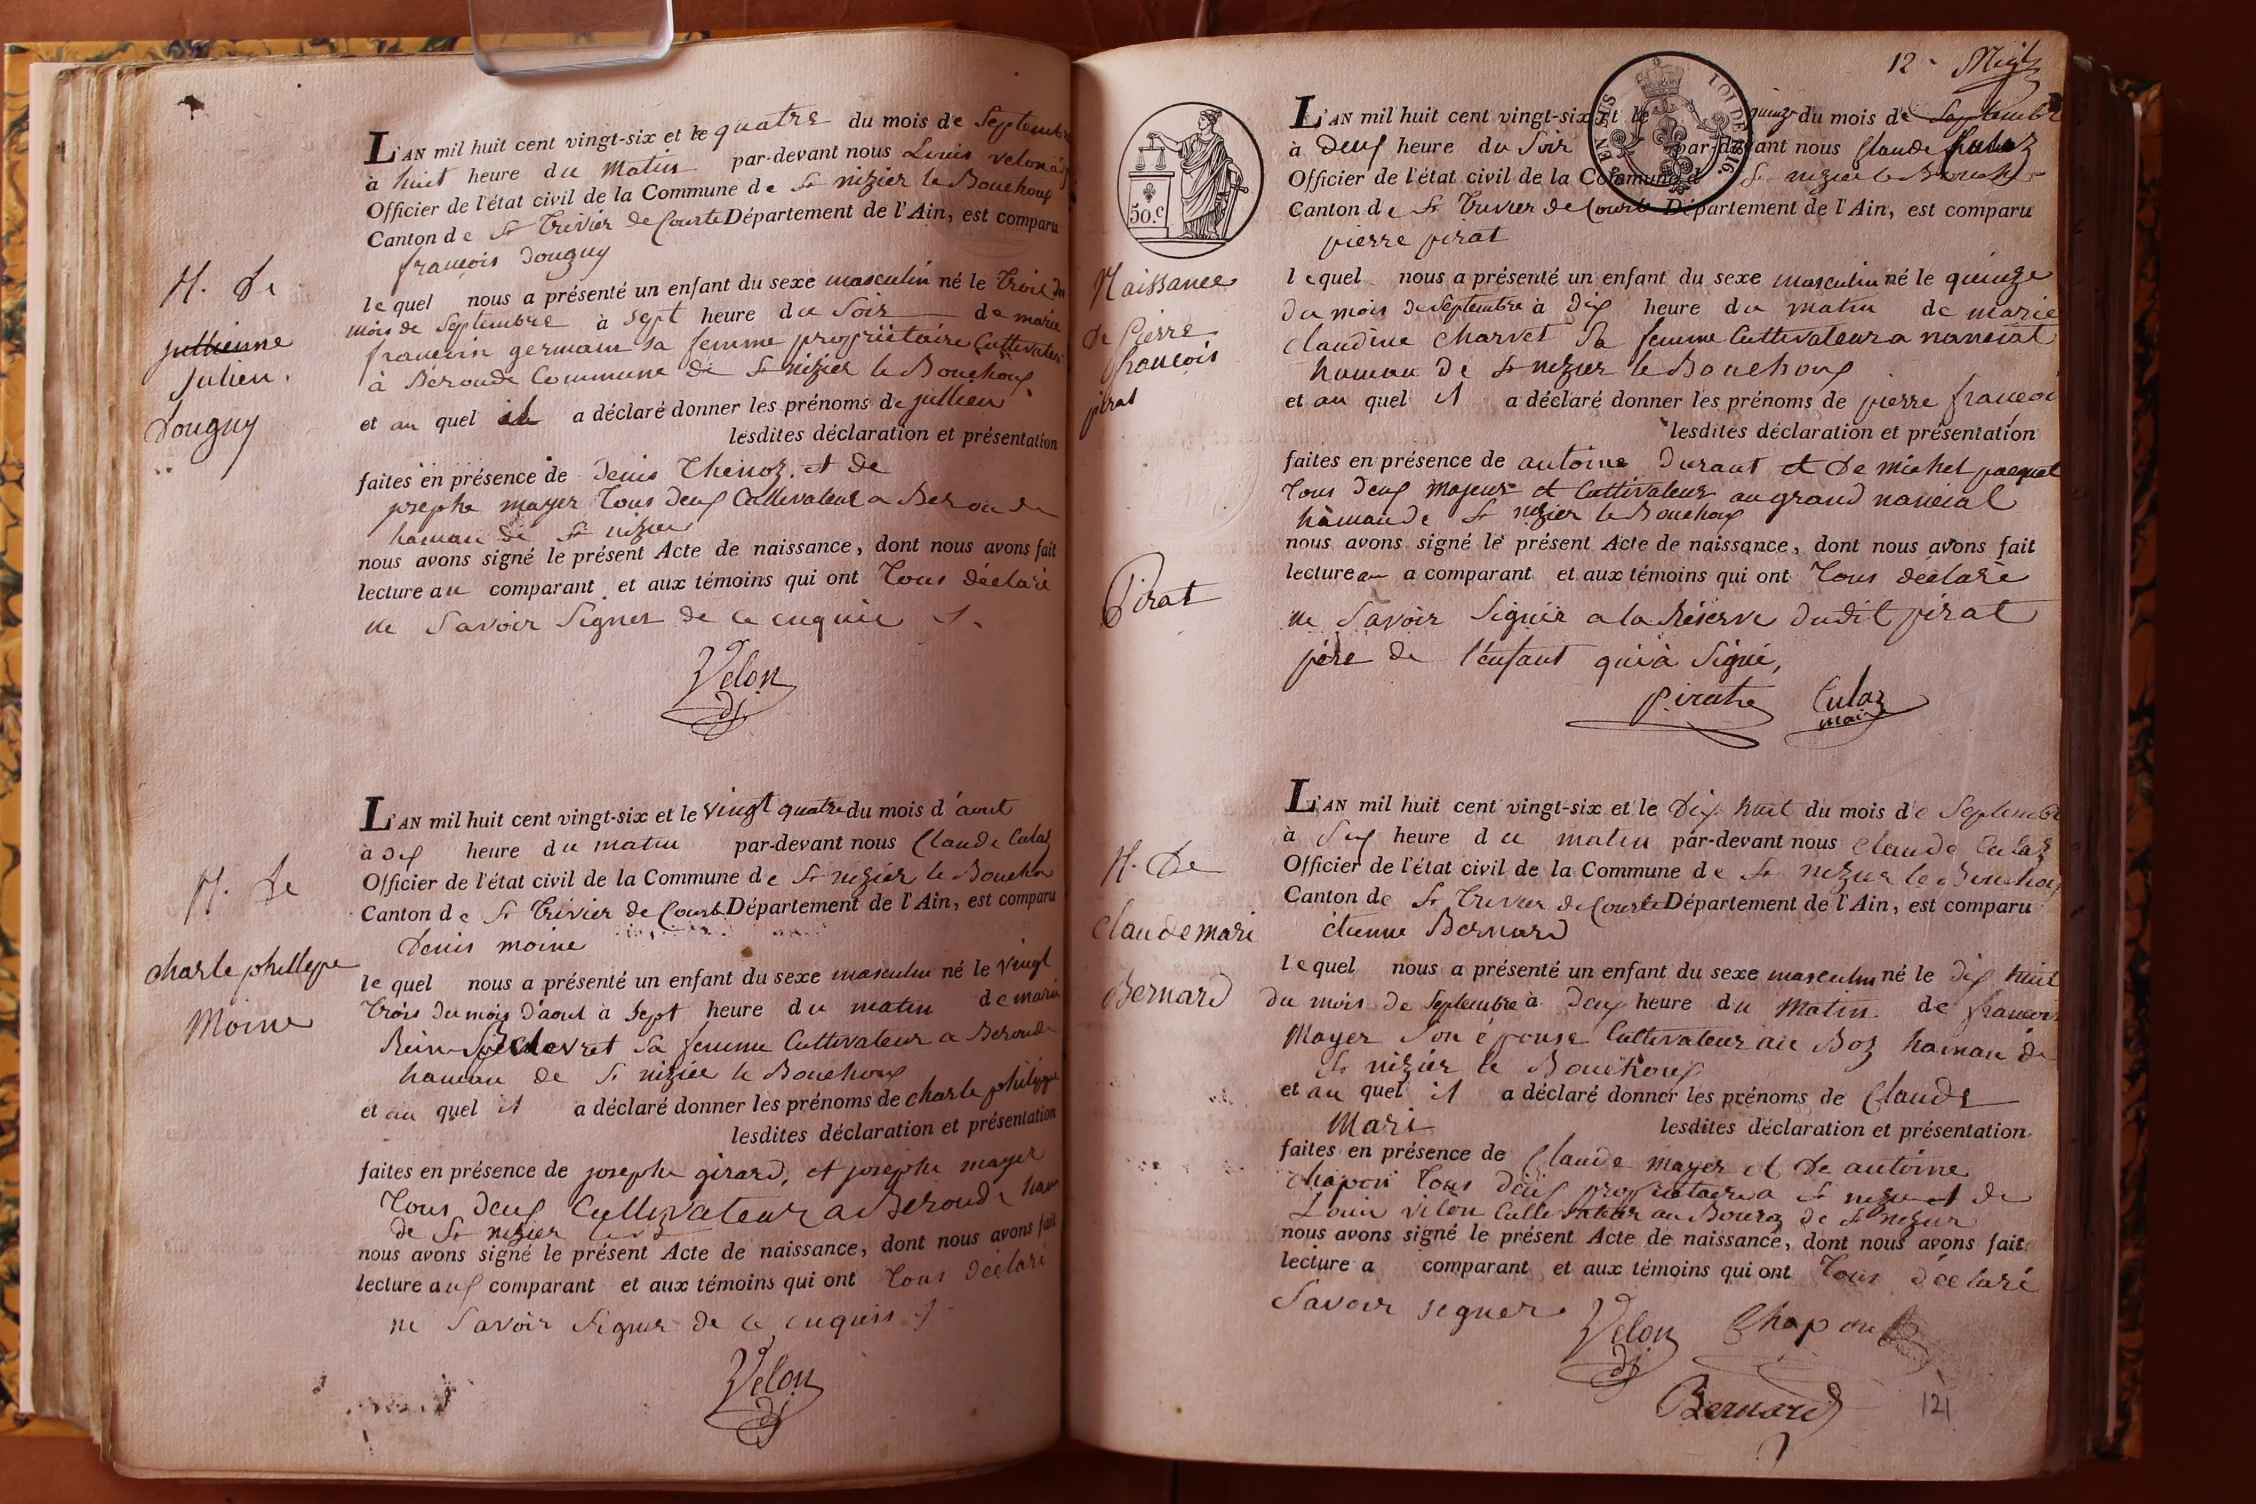 L'AN mil huit cent vingt-six et le quatre du mois de Septembre
à huit heure du Matin par-devant nous Louis velon
Officier de l'état civil de la Commune de St nizier le Bouchoux
Canton de St Trivier de Courte Département de l'Ain, est comparu
francois douguy
N. De
jullienne
Julien.
Douguy
le quel nous a présenté un enfant du sexe masculin né le trois du
mois de Septembre à Sept heure du Soir de marie
germain sa femme propriétaire Cultivateur
à Béroude Commune de St nizier le Bouchoux
et au quel il a déclaré donner les prénoms de jullien
lesdites déclaration et présentation
faites en présence de denis Thenoz et de
josephe mayer Tous deux Cultivateur a Beroude
hamau de St nizier
nous avons signé le présent Acte de naissance, dont nous avons fait
lecture au comparant et aux témoins qui ont Tous déclaré
ne Savoir Signer de ce enquie
Velon
L'AN mil huit cent vingt-six et le vingt quatre du mois d'aout
à dix heure du matin par-devant nous Claude Culaz
Officier de l'état civil de la Commune de St nizier le Bouchou
Canton de St Trivier de Courte Département de l'Ain, est comparu
Denis moine
N. De
charle phillippe
Moine
le quel nous a présenté un enfant du sexe masculin né le vingt
trois du mois d'aout à Sept heure du matin de marie
Sa femme Cultivateur a Béroude
hamau de St nizier le Bouchoux
et au quel il a déclaré donner les prénoms de charle philippe
lesdites déclaration et présentation
faites en présence de josephe girard, et josephe mayer
Tous deux Cultivateur a Beroude ham
de St nizier
nous avons signé le présent Acte de naissance, dont nous avons fait
lecture aux comparant et aux témoins qui ont Tous déclaré
ne Savoir Signer de ce enquis
Velon
12
50.c
EN SUS
LOI DE 1816.
L'AN mil huit cent vingt-six et le quinze du mois de Septembre
à deux heure du Soir par-devant nous Claude Culaz
Officier de l'état civil de la Commune de St nizier le Bouchoux
Canton de St Trivier de Courte Département de l'Ain, est comparu
pierre pirat
Naissance
de Pierre
francois
pirat
Pirat
le quel nous a présenté un enfant du sexe masculin né le quinze
du mois de Septembre à dix heure du matin de marie
claudine charvet Sa femme Cultivateur a nanciat
hamau de St nizier le Bouchoux
et au quel il a déclaré donner les prénoms de pierre francoi
lesdites déclaration et présentation
faites en présence de antoine durant et de michel paquet
Tous deux Majeur et Cultivateur au grand nancial
hamau de St nizier le Bouchoux
nous avons signé le présent Acte de naissance, dont nous avons fait
lecture au a comparant et aux témoins qui ont Tous déclaré
ne Savoir Signer a la Réserve dudit pirat
père de l'enfant qui à Signé,
piratre Culaz
maire
L'AN mil huit cent vingt-six et le dix huit du mois de Septembre
à Six heure du matin par-devant nous Claude Culaz
Officier de l'état civil de la Commune de St nizier le Bouchoux
Canton de St Trivier de Courte Département de l'Ain, est comparu
étienne Bernard
N. De
claude mari
Bernard
le quel nous a présenté un enfant du sexe masculin né le dix huit
du mois de Septembre à deux heure du Matin de francois
Mayer Son épouse Cultivateur au Boz hamau de
St nizier le Bouchoux
et au quel il a déclaré donner les prénoms de Claude
Mari lesdites déclaration et présentation
faites en présence de Claude mayer et de antoine
chapon Tous deux propriétaire a St nizier et de
Louis velon Cultivateur au Bourg de St nizier
nous avons signé le présent Acte de naissance, dont nous avons fait
lecture a comparant et aux témoins qui ont Tous déclaré
Savoir signer
Velon Chapon
Bernard
121